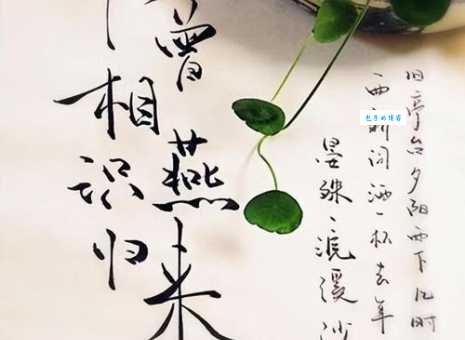 曾相识
燕归来
曲新词酒一杯去年
旧亭台夕阳西下几时
晏殊、浣溪沙